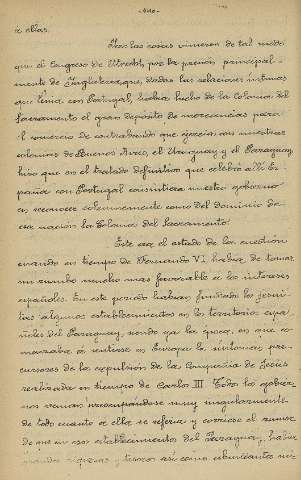 á ellas.
Mas las cosas vinieron de tal modo
que el Congreso de Utrecht, por la presion principal-
mente de Inglaterra que, dadas las relaciones intimas
que tenia con Portugal, habia hecho de la Colonia del
Sacramento el gran depósito de mercancias para
el comercio de contrabando que ejercia con nuestras
colonias de Buenos Aires, el Uruguay y el Paraguay,
hizo que en el tratado definitivo que celebró allí Es-
paña con Portugal consintiera nuestro gobierno
en reconocer solemnemente como del dominio de
esa nacion la Colonia del Sacramento.
Este era el estado de la cuestion
cuando en tiempo de Fernando VI habia de tomar
un rumbo mucho mas favorable á los intereses
españoles. En este periodo habian fundado los jesui-
tas algunos establecimientos en los territorios espa-
ñoles del Paraguay, siendo ya la época en que co-
menzaba á sentirse en Europa los sintomas pre-
cursores de la expulsion de la Compañia de Jesús
realizada en tiempo de Carlos III. Todos los gobier-
nos venian preocupándose muy singularmente
de todo cuanto á ella se referia y corriose el rumor
de que en sus establecimientos del Paraguay, habia
riquezas y tesoros asi como abundantes mi-